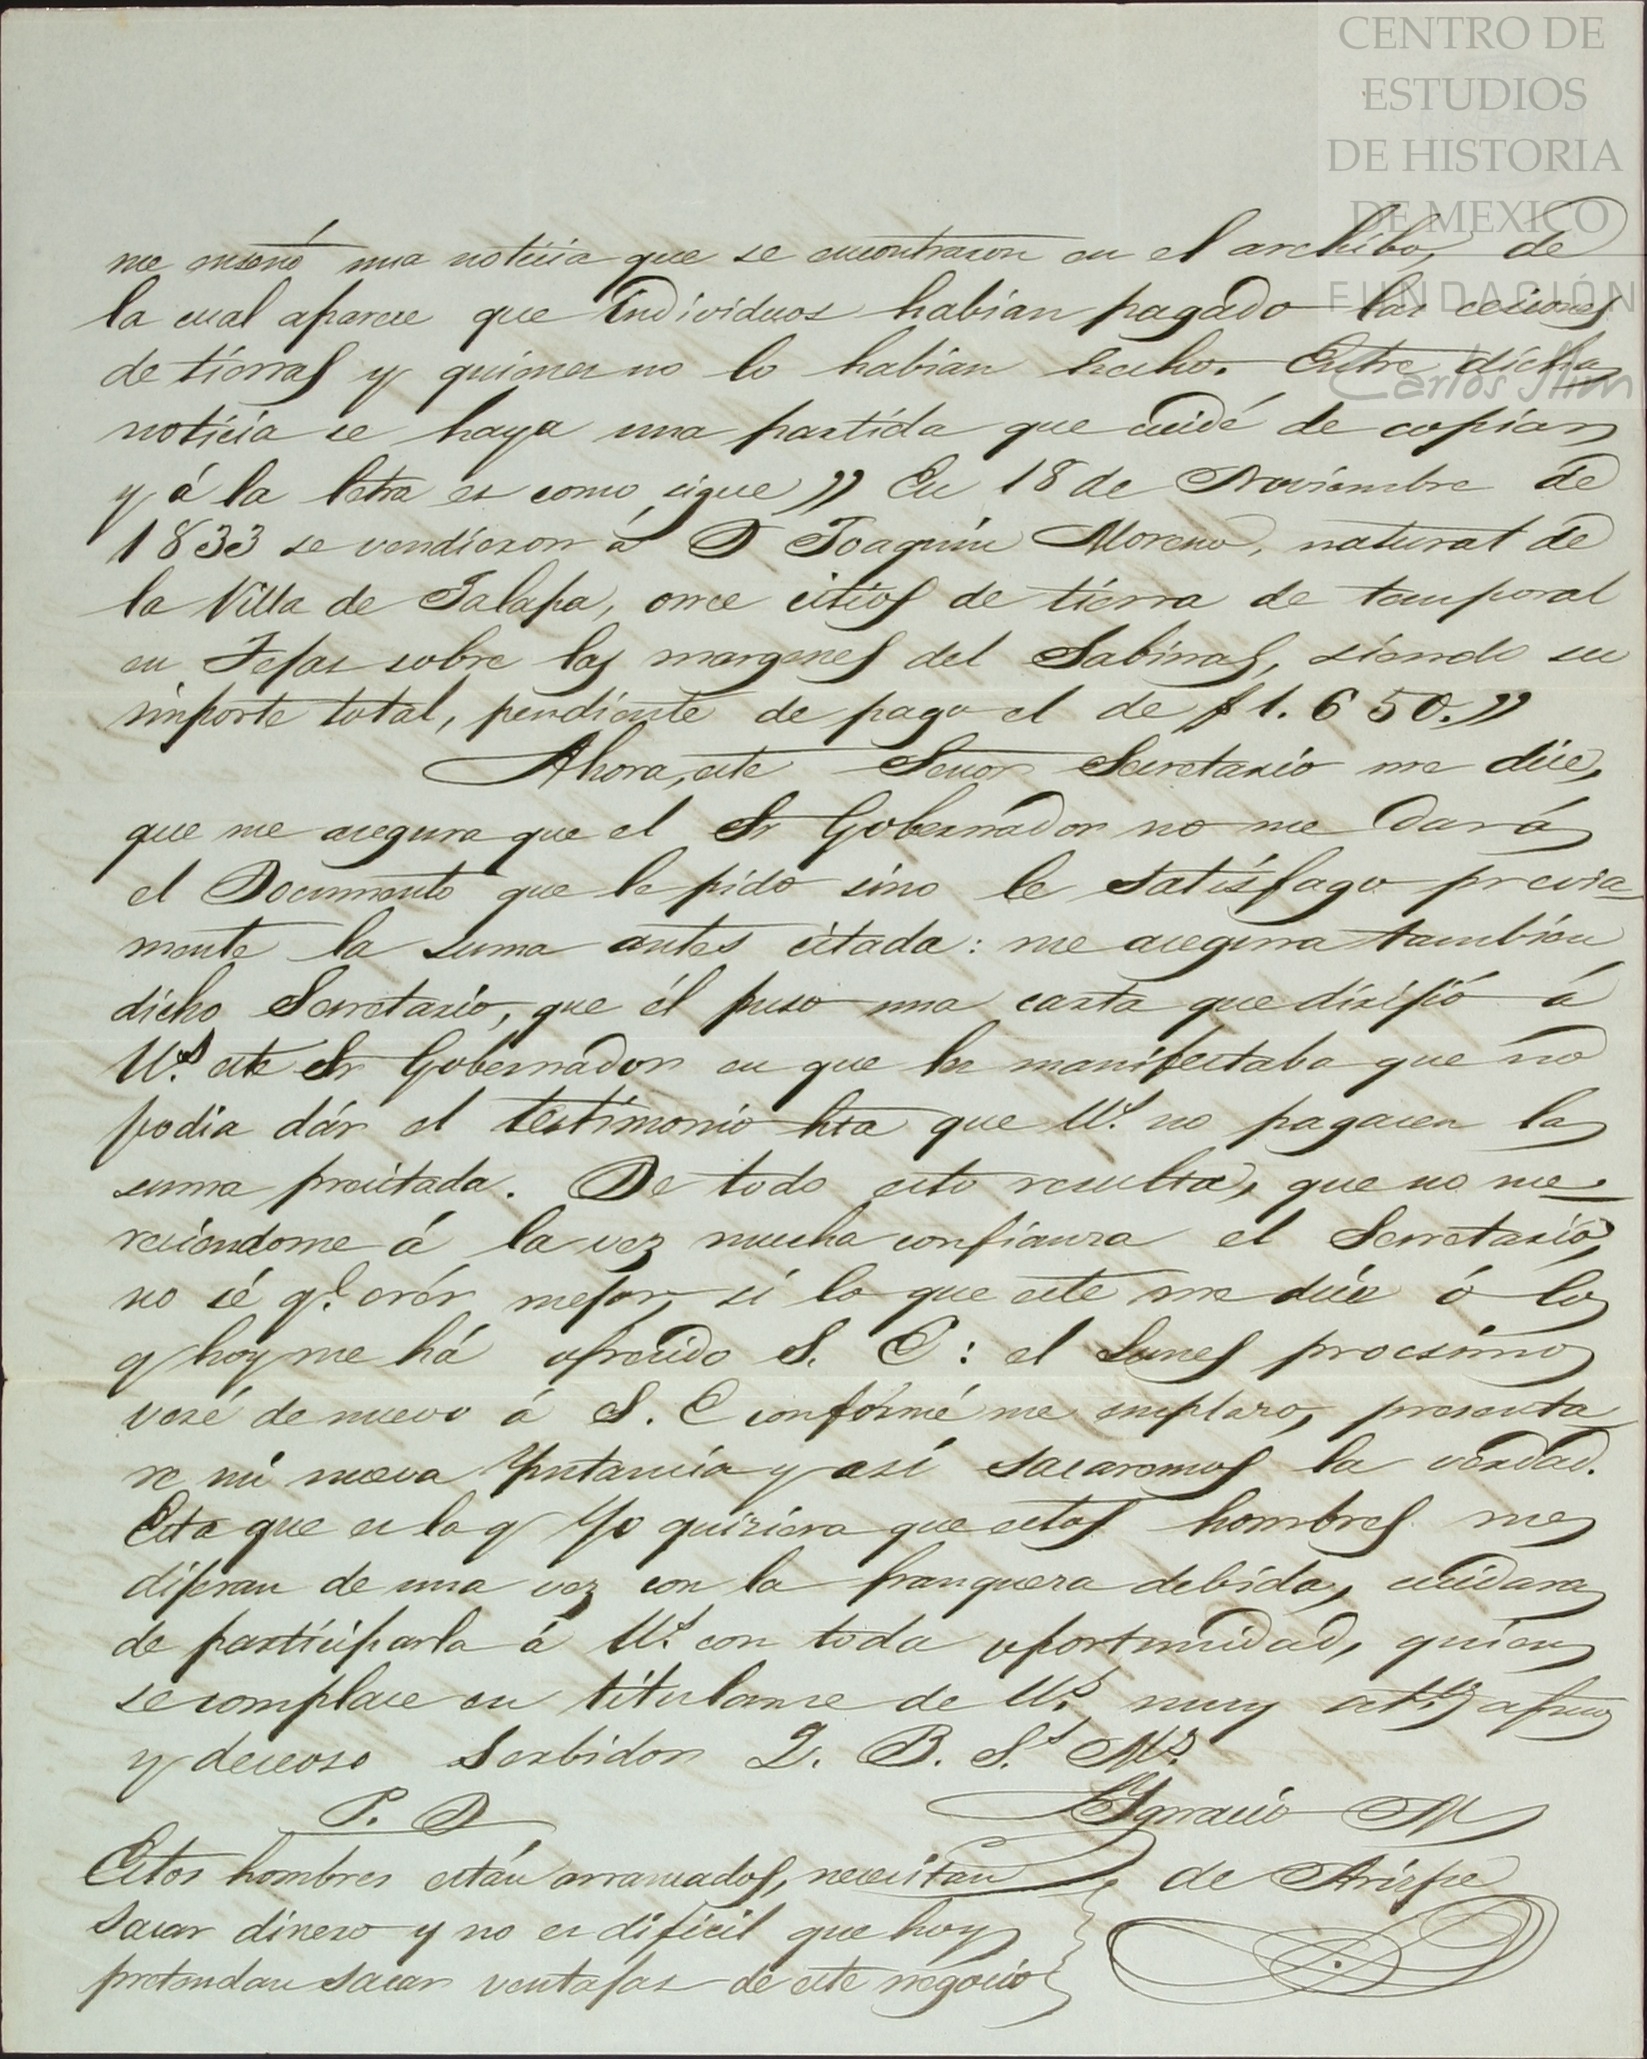 CENTRO DE
ESTUDIOS
DE HISTORIA
DE MEXICO
FUNDACIÓN
Carlos Slim
me enseñó una noticia que se encontraron en el archibo, de
la cual aparece que individuos habian pagado las cesiones
de tierras y quienes no lo habian hecho. Entre dicha
noticia se haya una partida que cuidé de copiar,
y á la letra es como sigue )) En 18 de Noviembre de
1833 se vendieron á D Joaquin Moreno, natural de
la Villa de Jalapa, once sitios de tierra de temporal
en Tejas sobre las margenes del Sabinas, siendo su
importe total, pendiente de pago el de $ 1.650. ))
Ahora, este Señor Secretario me dice,
que me asegura que el Sr Gobernador no me dará
el Documento que le pido sino le satisfago previa-
mente la suma antes citada: me asegura tambien
dicho Secretario, que él puso una carta que dirijió á
Us. este Sr Gobernador en que les manifestaba que no
podia dár el testimonio hta que Us. no pagasen la
suma precitada. De todo esto resulta, que no me-
reciendome á la vez mucha confianza el Secretario,
no sé qe. creér mejor, si lo que este me dice ó lo
q hoy me há ofrecido S. E: el Lunes procsimo
veré de nuevo á S. E conforme me emplazo, presenta
re mi nueva Ynstancia y asi sacaremos la verdad.
Esta que es la q Yo quiziera que estos hombres me
dijeran de una vez con la franqueza debida, cuidara
de participarla á Us. con toda oportunidad, quien
se complace en titularse de Us. muy atto. afmo
y deceoso Serbidor Q. B. Ss Ms.
Ygnacio M
de Arizpe
P. D
Estos hombres están arrancados, necesitan
sacar dinero y no es dificil que hoy
pretendan sacar ventajas de este negocio